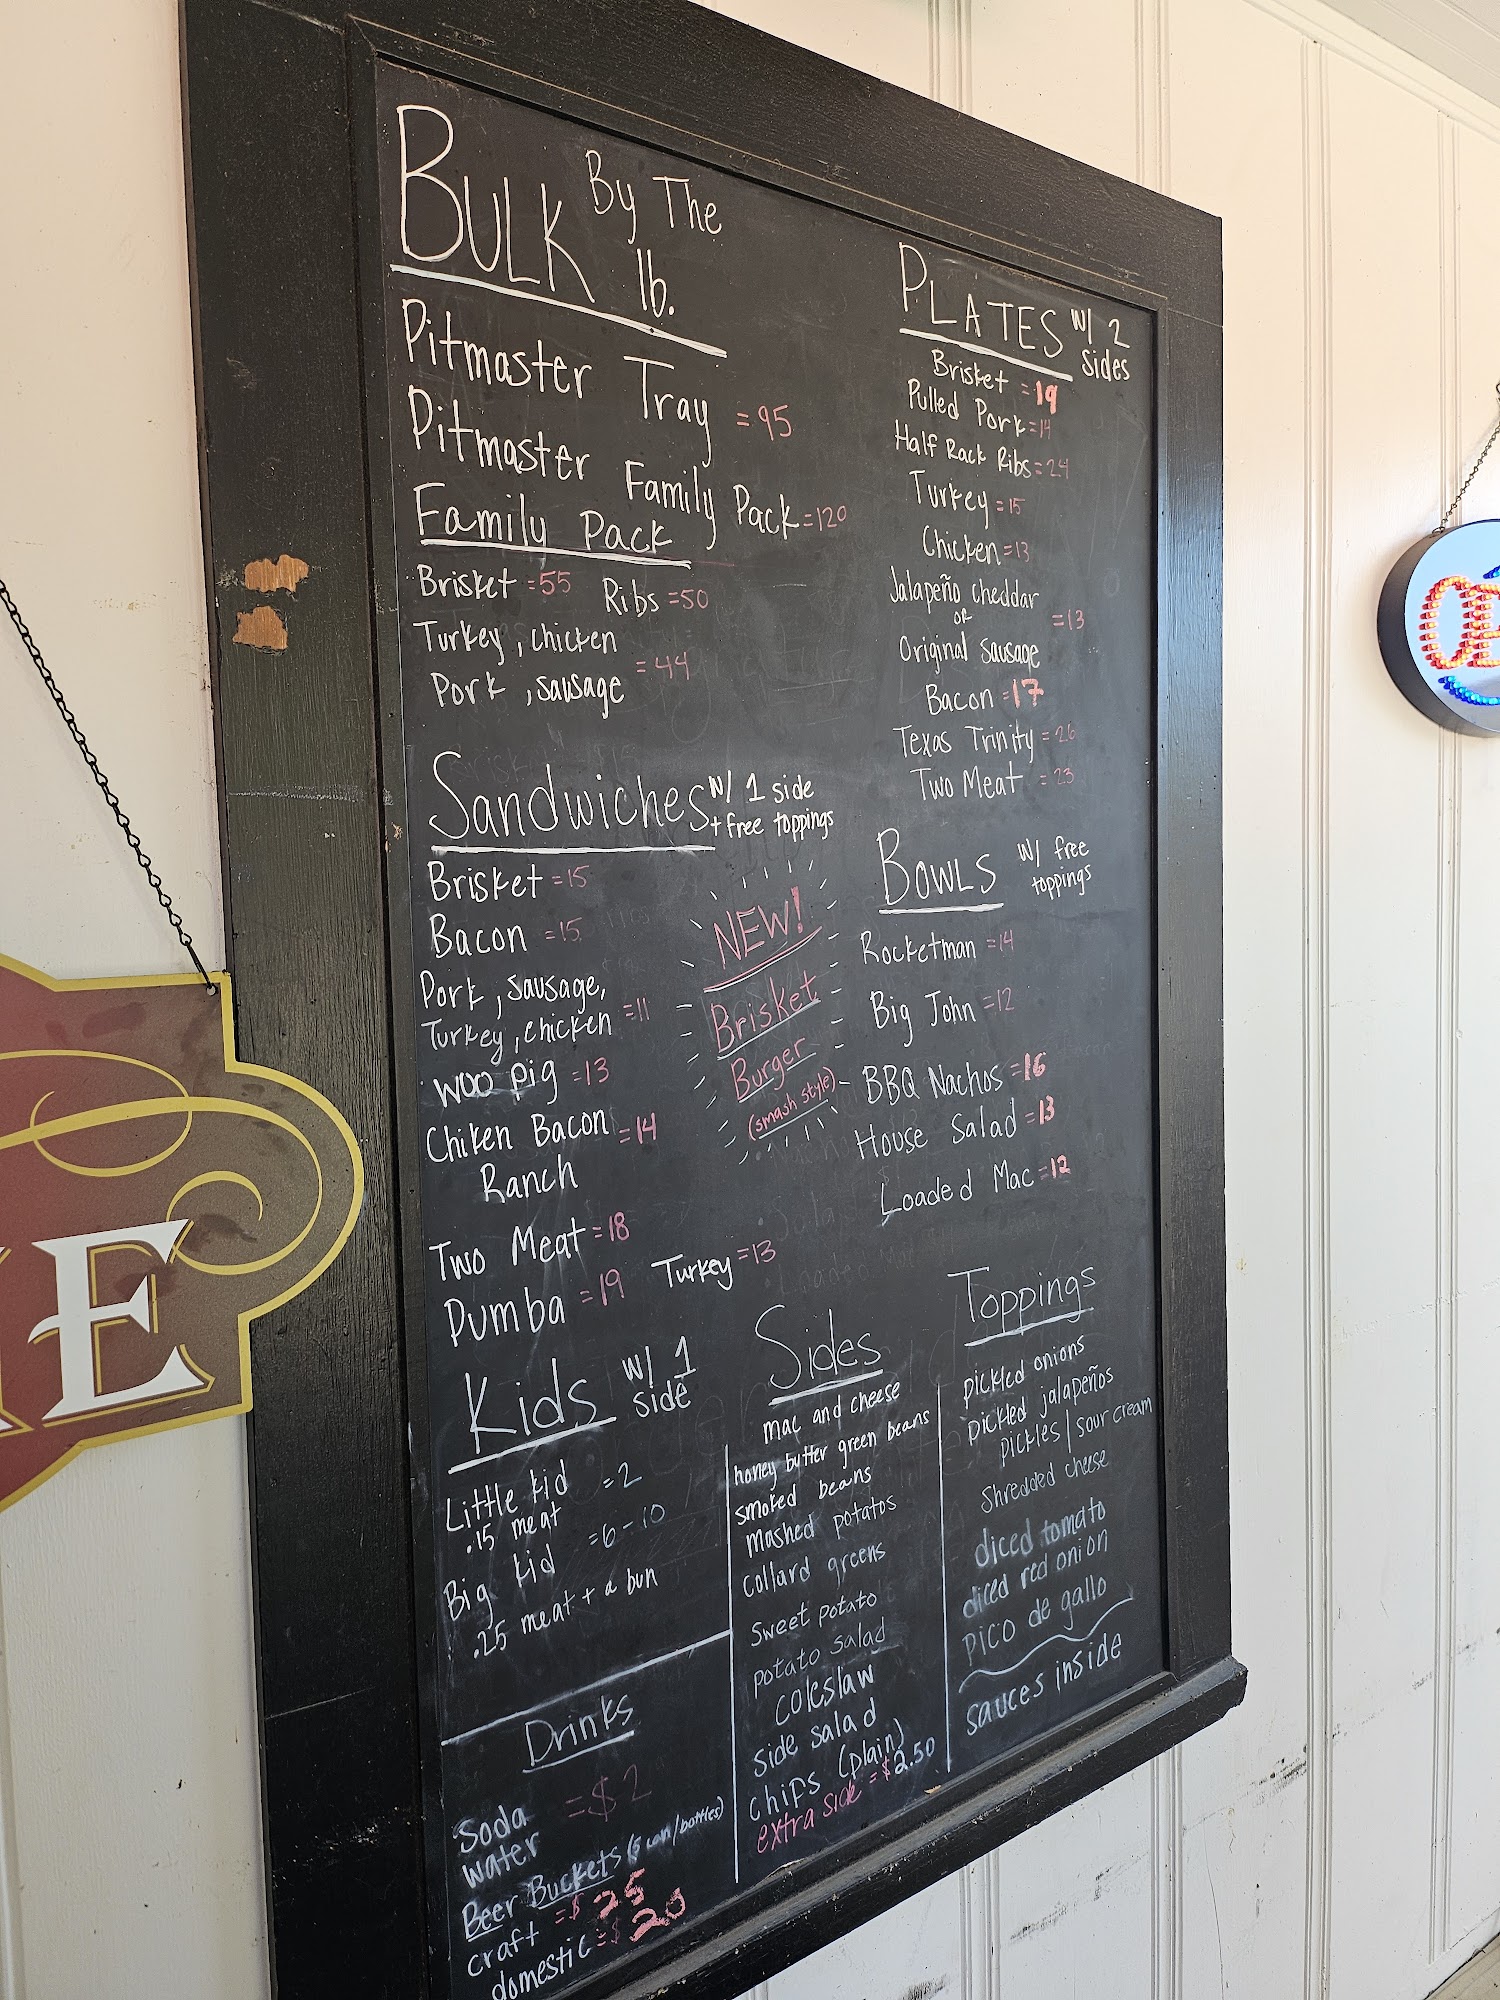 BULK By The
lb.
Pitmaster Tray = 95
Pitmaster Family Pack = 120
Family Pack
Brisket = 55 Ribs = 50
Turkey, chicken
Pork, sausage = 44
Sandwiches w/ 1 side
+ free toppings
Brisket = 15
Bacon = 15
Pork, sausage,
Turkey, chicken = 11
woo pig = 13
Chiken Bacon = 14
Ranch
Two Meat = 18
Pumba = 19 Turkey = 13
NEW!
Brisket
Burger
(smash style)
Kids w/ 1
side
Little kid = 2
.15 meat
Big kid = 6-10
.25 meat + a bun
Drinks
Soda = $2
water
Beer Buckets (5 can/bottles)
craft = $25
domestic = $20
PLATES w/ 2
sides
Brisket = 19
Pulled Pork = 14
Half Rack Ribs = 24
Turkey = 15
Chicken = 13
Jalapeño cheddar
or = 13
Original sausage
Bacon = 17
Texas Trinity = 26
Two Meat = 23
BOWLS w/ free
toppings
Rocketman = 14
Big John = 12
BBQ Nachos = 16
House Salad = 13
Loaded Mac = 12
Sides
mac and cheese
honey butter green beans
smoked beans
mashed potatos
collard greens
sweet potato
potato salad
coleslaw
side salad
chips (plain)
extra side = $2.50
Toppings
pickled onions
pickled jalapeños
pickles | sour cream
shredded cheese
diced tomato
diced red onion
pico de gallo
sauces inside